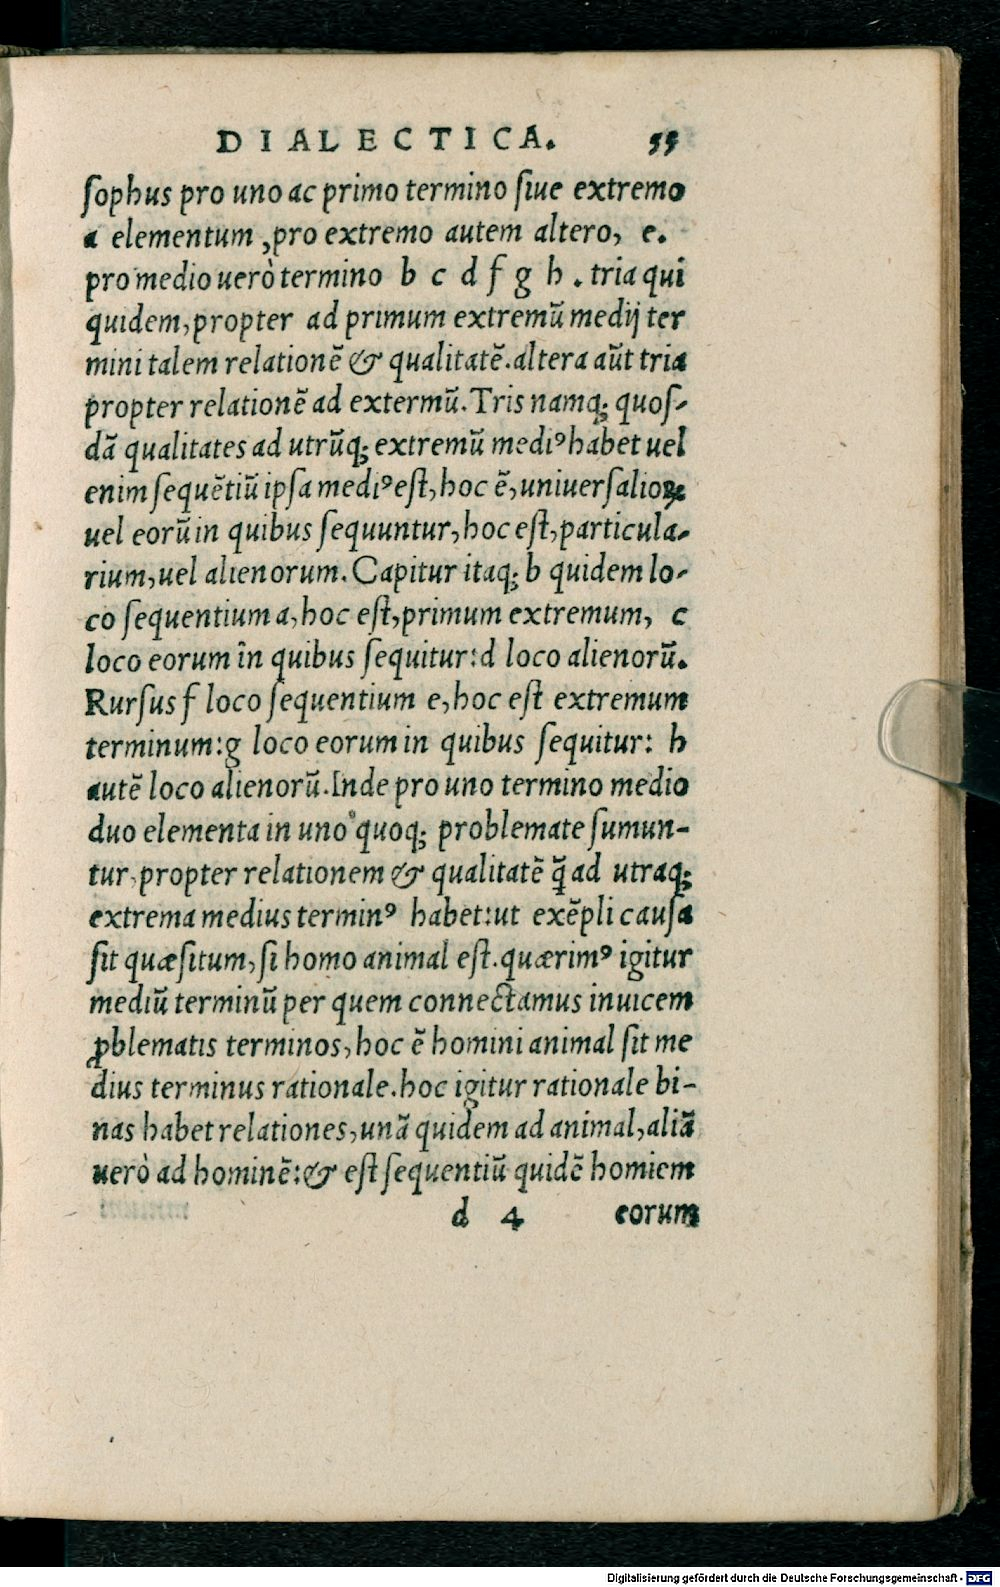 DIALECTICA. 55
sophus pro uno ac primo termino siue extremo
a elementum, pro extremo autem altero, e.
pro medio uerò termino b c d f g h. tria qui
quidem, propter ad primum extremũ medij ter
mini talem relationẽ & qualitatẽ. altera aũt tria
propter relationẽ ad extermũ. Tris namq; quos-
dã qualitates ad utrũq; extremũ mediꝰ habet uel
enim sequẽtiũ ipsa mediꝰ est, hoc ẽ, uniuersalioꝝ
uel eorũ in quibus sequuntur, hoc est, particula-
rium, uel alienorum. Capitur itaq; b quidem lo-
co sequentium a, hoc est, primum extremum, c
loco eorum în quibus sequitur: d loco alienorũ.
Rursus f loco sequentium e, hoc est extremum
terminum: g loco eorum in quibus sequitur: h
autẽ loco alienorũ. Inde pro uno termino medio
duo elementa in uno quoq; problemate sumun-
tur, propter relationem & qualitatẽ q̃ ad utraq;
extrema medius terminꝰ habet: ut exẽpli causa
sit quæsitum, si homo animal est. quærimꝰ igitur
mediũ terminũ per quem connectamus inuicem
ꝓblematis terminos, hoc ẽ homini animal sit me
dius terminus rationale. hoc igitur rationale bi-
nas habet relationes, unã quidem ad animal, aliã
uerò ad hominẽ: & est sequentiũ quidẽ homiem
d 4 eorum
Digitalisierung gefördert durch die Deutsche Forschungsgemeinschaft - DFG